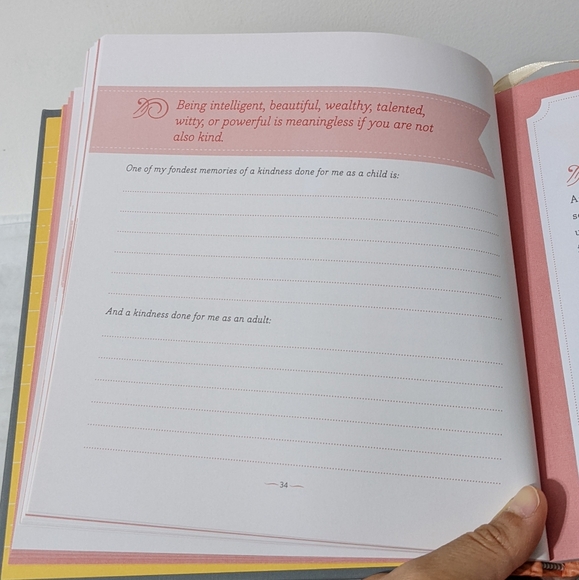 Being intelligent, beautiful, wealthy, talented,
witty, or powerful is meaningless if you are not
also kind.
One of my fondest memories of a kindness done for me as a child is:
And a kindness done for me as an adult:
34